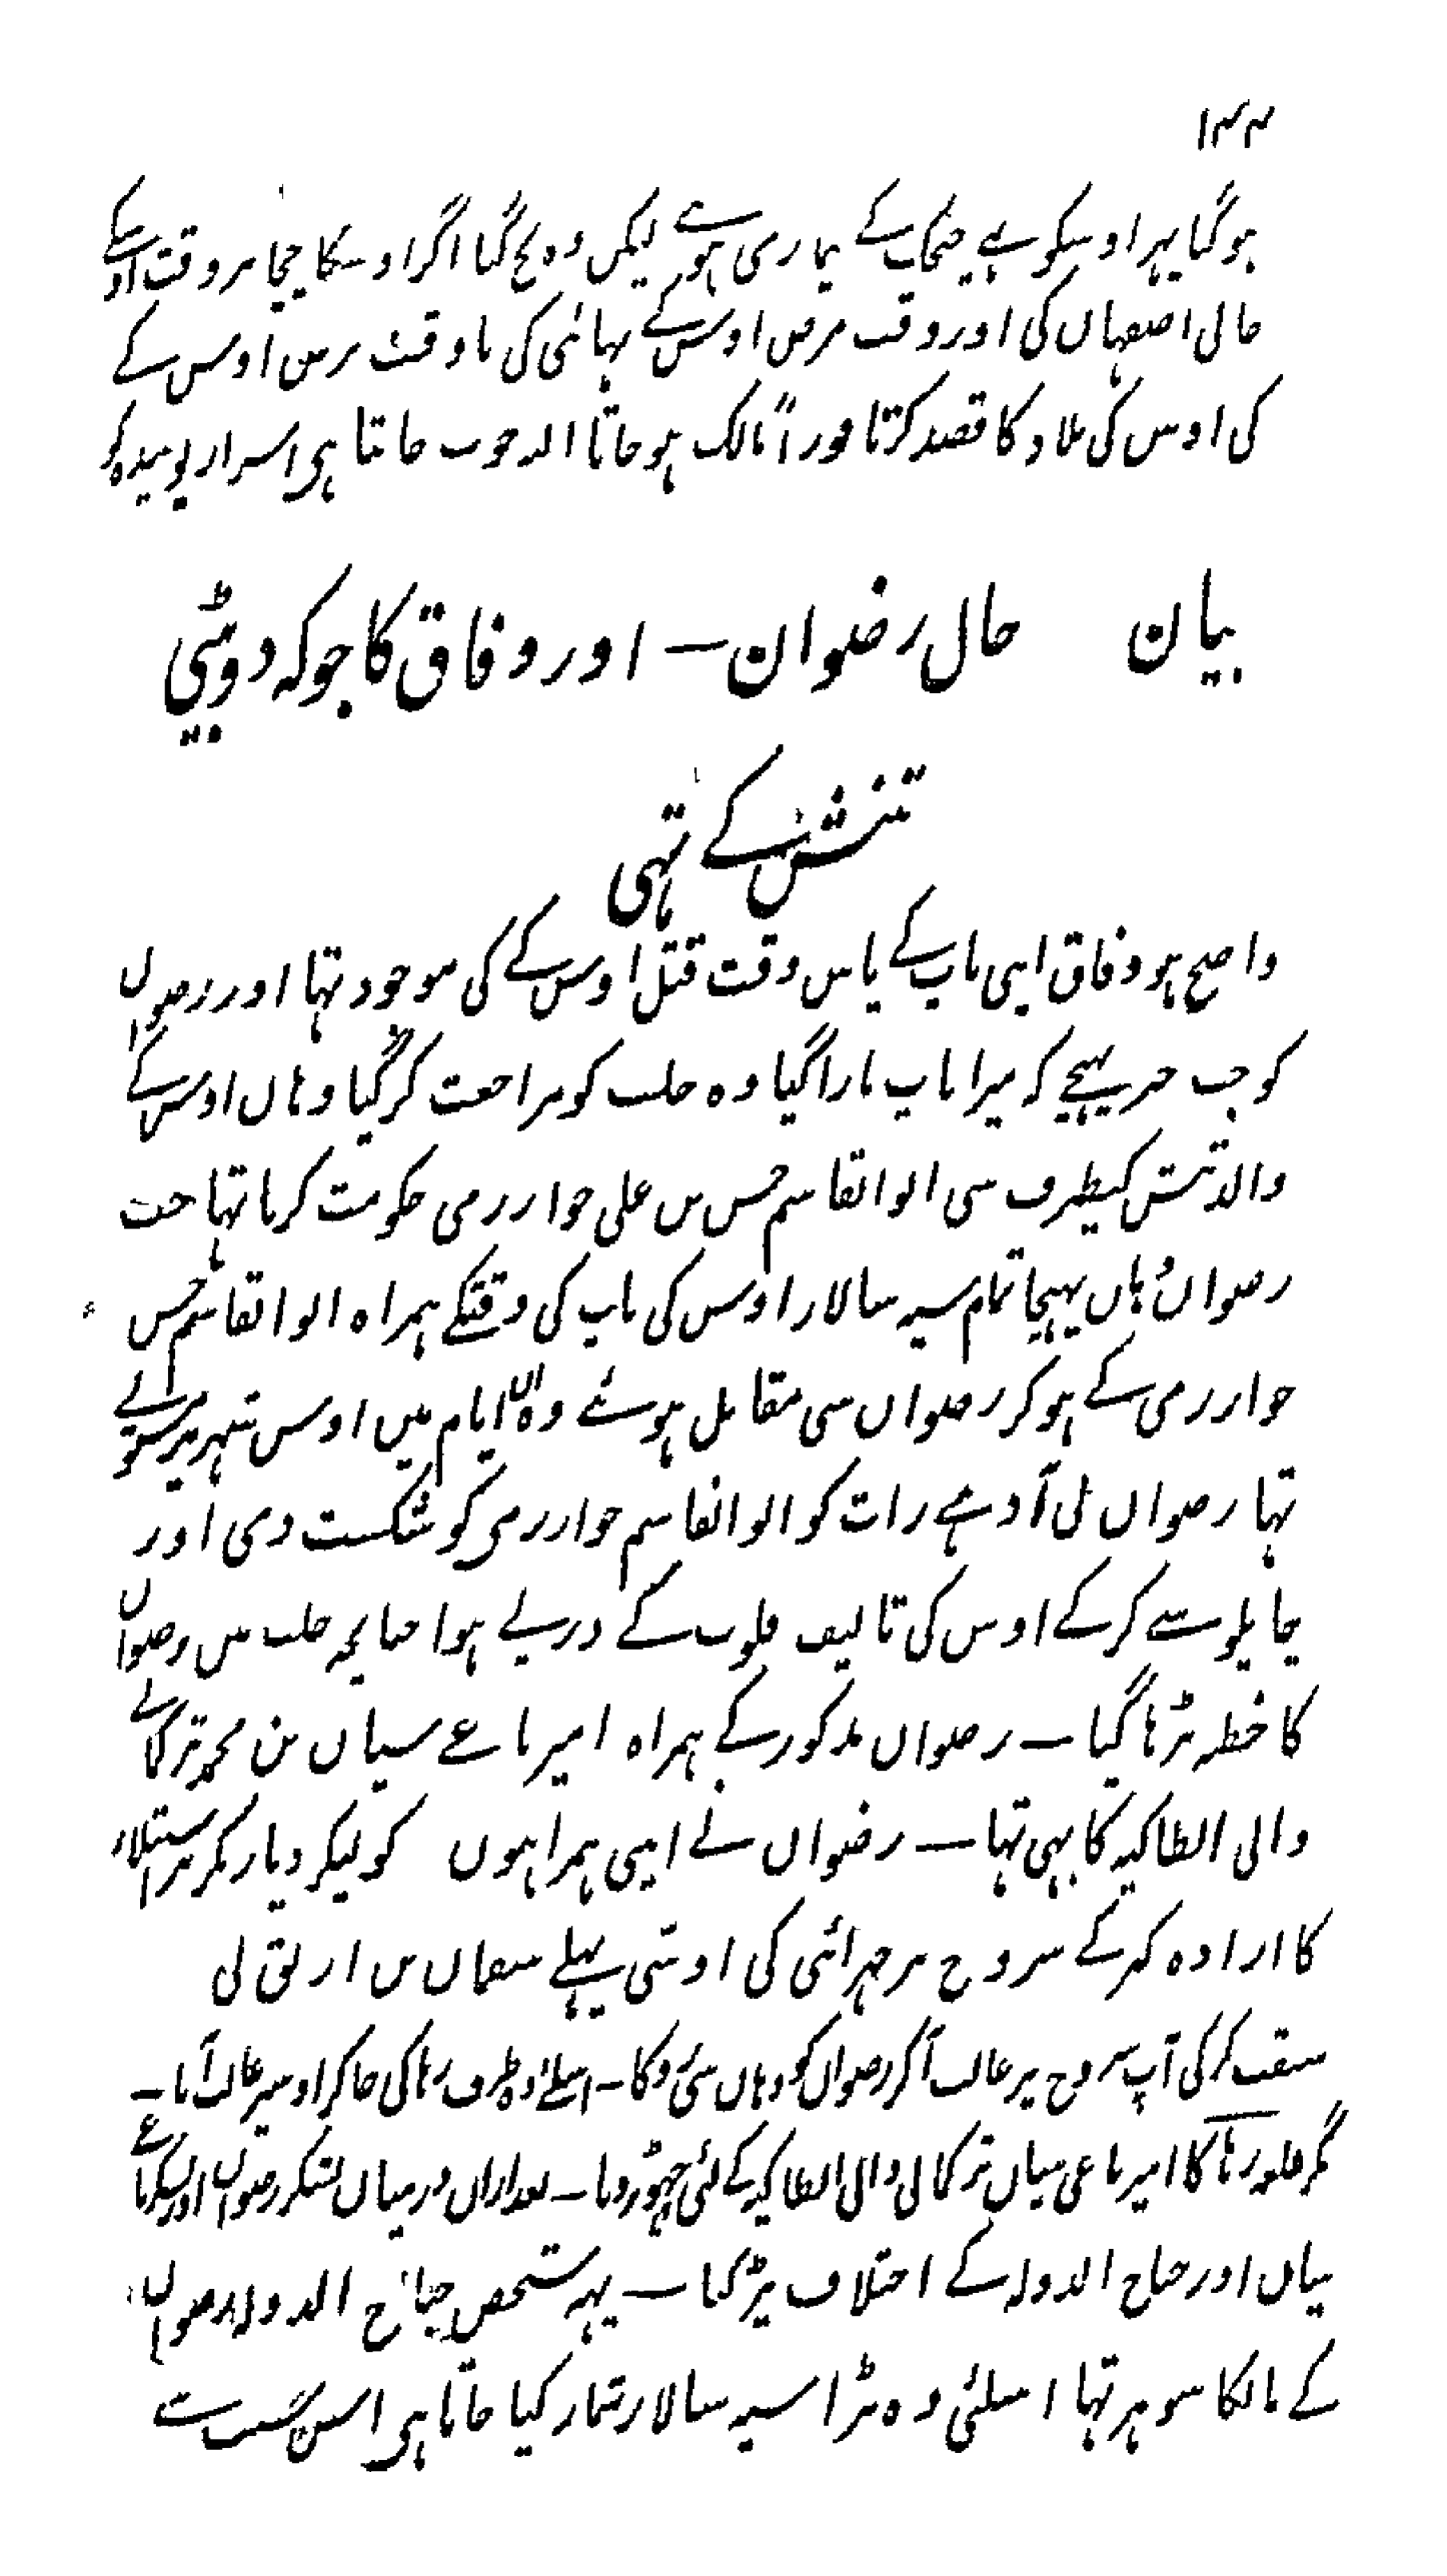 ۱۴۴
ہوگیا پہر اوسکو بہی چیچک کے بیماری ہوے لیکن وہ بچ گیا اگر اوسکا چچا بروقت اونکے
حال اصفہان کی اور وقت مرض اوس کے پہانسی کی یا وقت مرض اوس کے
کی اوس کی بلاد کا قصد کرتا فوراً مالک ہو جاتا اللہ خوب جانتا ہی اسرار پوشیدہ کو
بیان حال رضوان — اور دفاق کا جو کہ دوبیٹی
تتش کے تہی
واضح ہو دفاق اپنی باپ کے پاس وقت قتل اوس کے کی موجود تہا اور رضوان
کو جب خبر پہنچے کہ میرا باپ مارا گیا وہ حلب کو مراجعت کر گیا وہاں اوس کے
والد تتش کیطرف سی ابو القاسم حسن بن علی خوارزمی حکومت کرتا تہا جب
رضوان وہاں پہنچا تمام سپہ سالار اوس کی باپ کی وقتکے ہمراہ ابو القاسم حسن
خوارزمی کے ہو کر رضوان سی مقابل ہوئے وہ ان ایام میں اوس شہر پر مستولے
تہا رضوان نی آدہے رات کو ابو القاسم خوارزمی کو شکست دی اور
چاپلوسے کر کے اوس کی تالیف قلوب کے درپے ہوا چنانچہ حلب میں رضوان
کا خطبہ پڑہا گیا — رضوان مذکور کے ہمراہ امیر باغے سیان بن محمد ترکمانے
والی انطاکیہ کا بہی تہا — رضوان نے اپنی ہمراہیوں کو لیکر دیار بکر پر استیلاء
کا ارادہ کر کے سروج پر چڑہائی کی اوسی پہلے سقمان بن ارتق نی
سبقت کر کی آپ سروج پر غالب آکر رضوان کو وہاں سی روکا — اسلئے وہ طرف رہا کی جا کر اوسپر غالب آیا —
مگر قلعہ رہا کا امیر باغی سیان ترکمانی والی انطاکیہ کے لئی چہوڑ دیا — بعد ازاں درمیان لشکر رضوان اور لشکر باغے
سیان اور جناح الدولہ کے اختلاف پڑ گیا — یہہ شخص جناح الدولہ رضوان
کے ماں کا شوہر تہا اسلئی وہ بڑا سپہ سالار شمار کیا جاتا ہی اس سبب سے